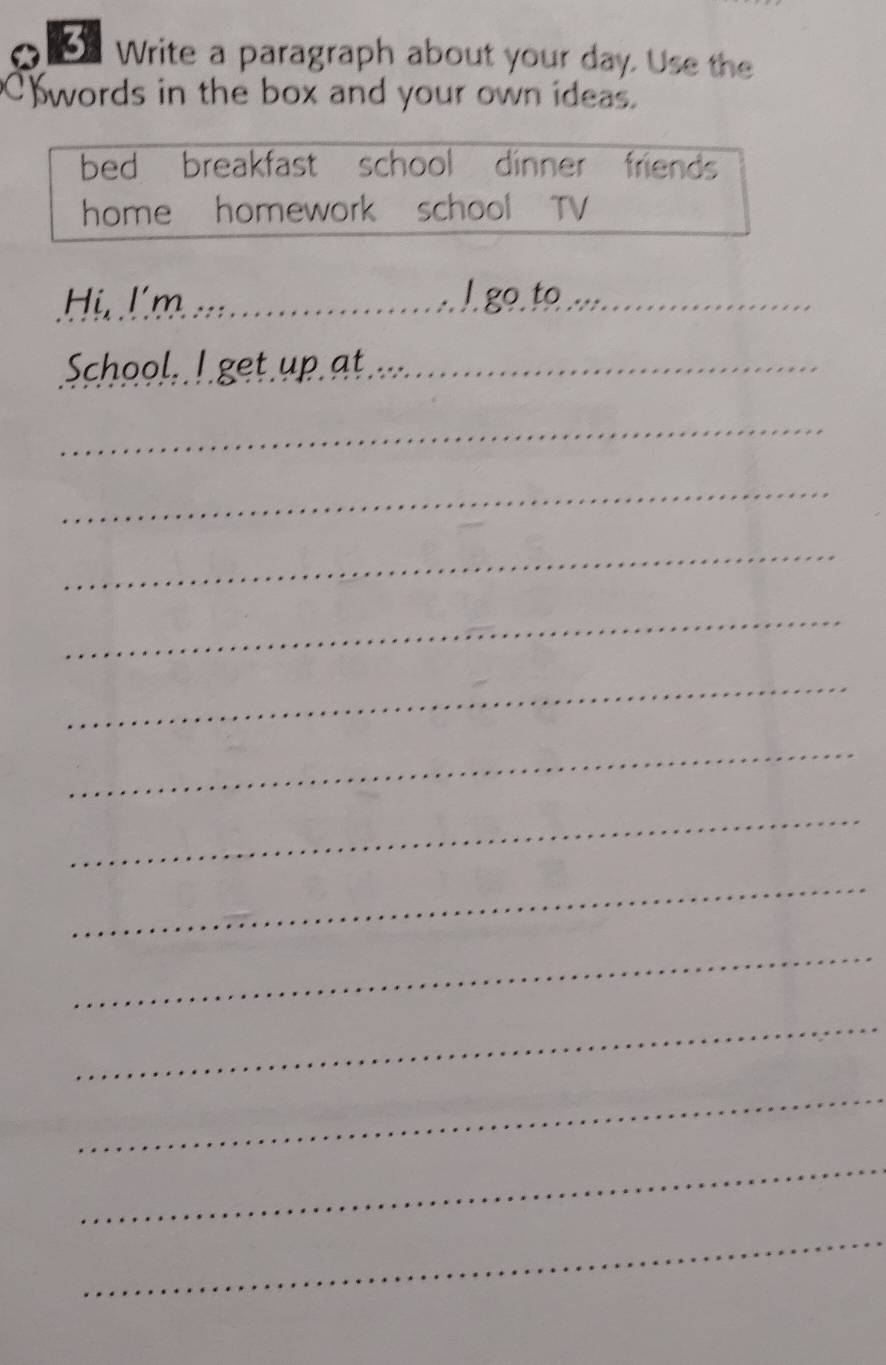 3 Write a paragraph about your day. Use the
words in the box and your own ideas.
bed breakfast school dinner friends
home homework school TV
Hi, I'm ... . I go to ...
School. I get up at ...